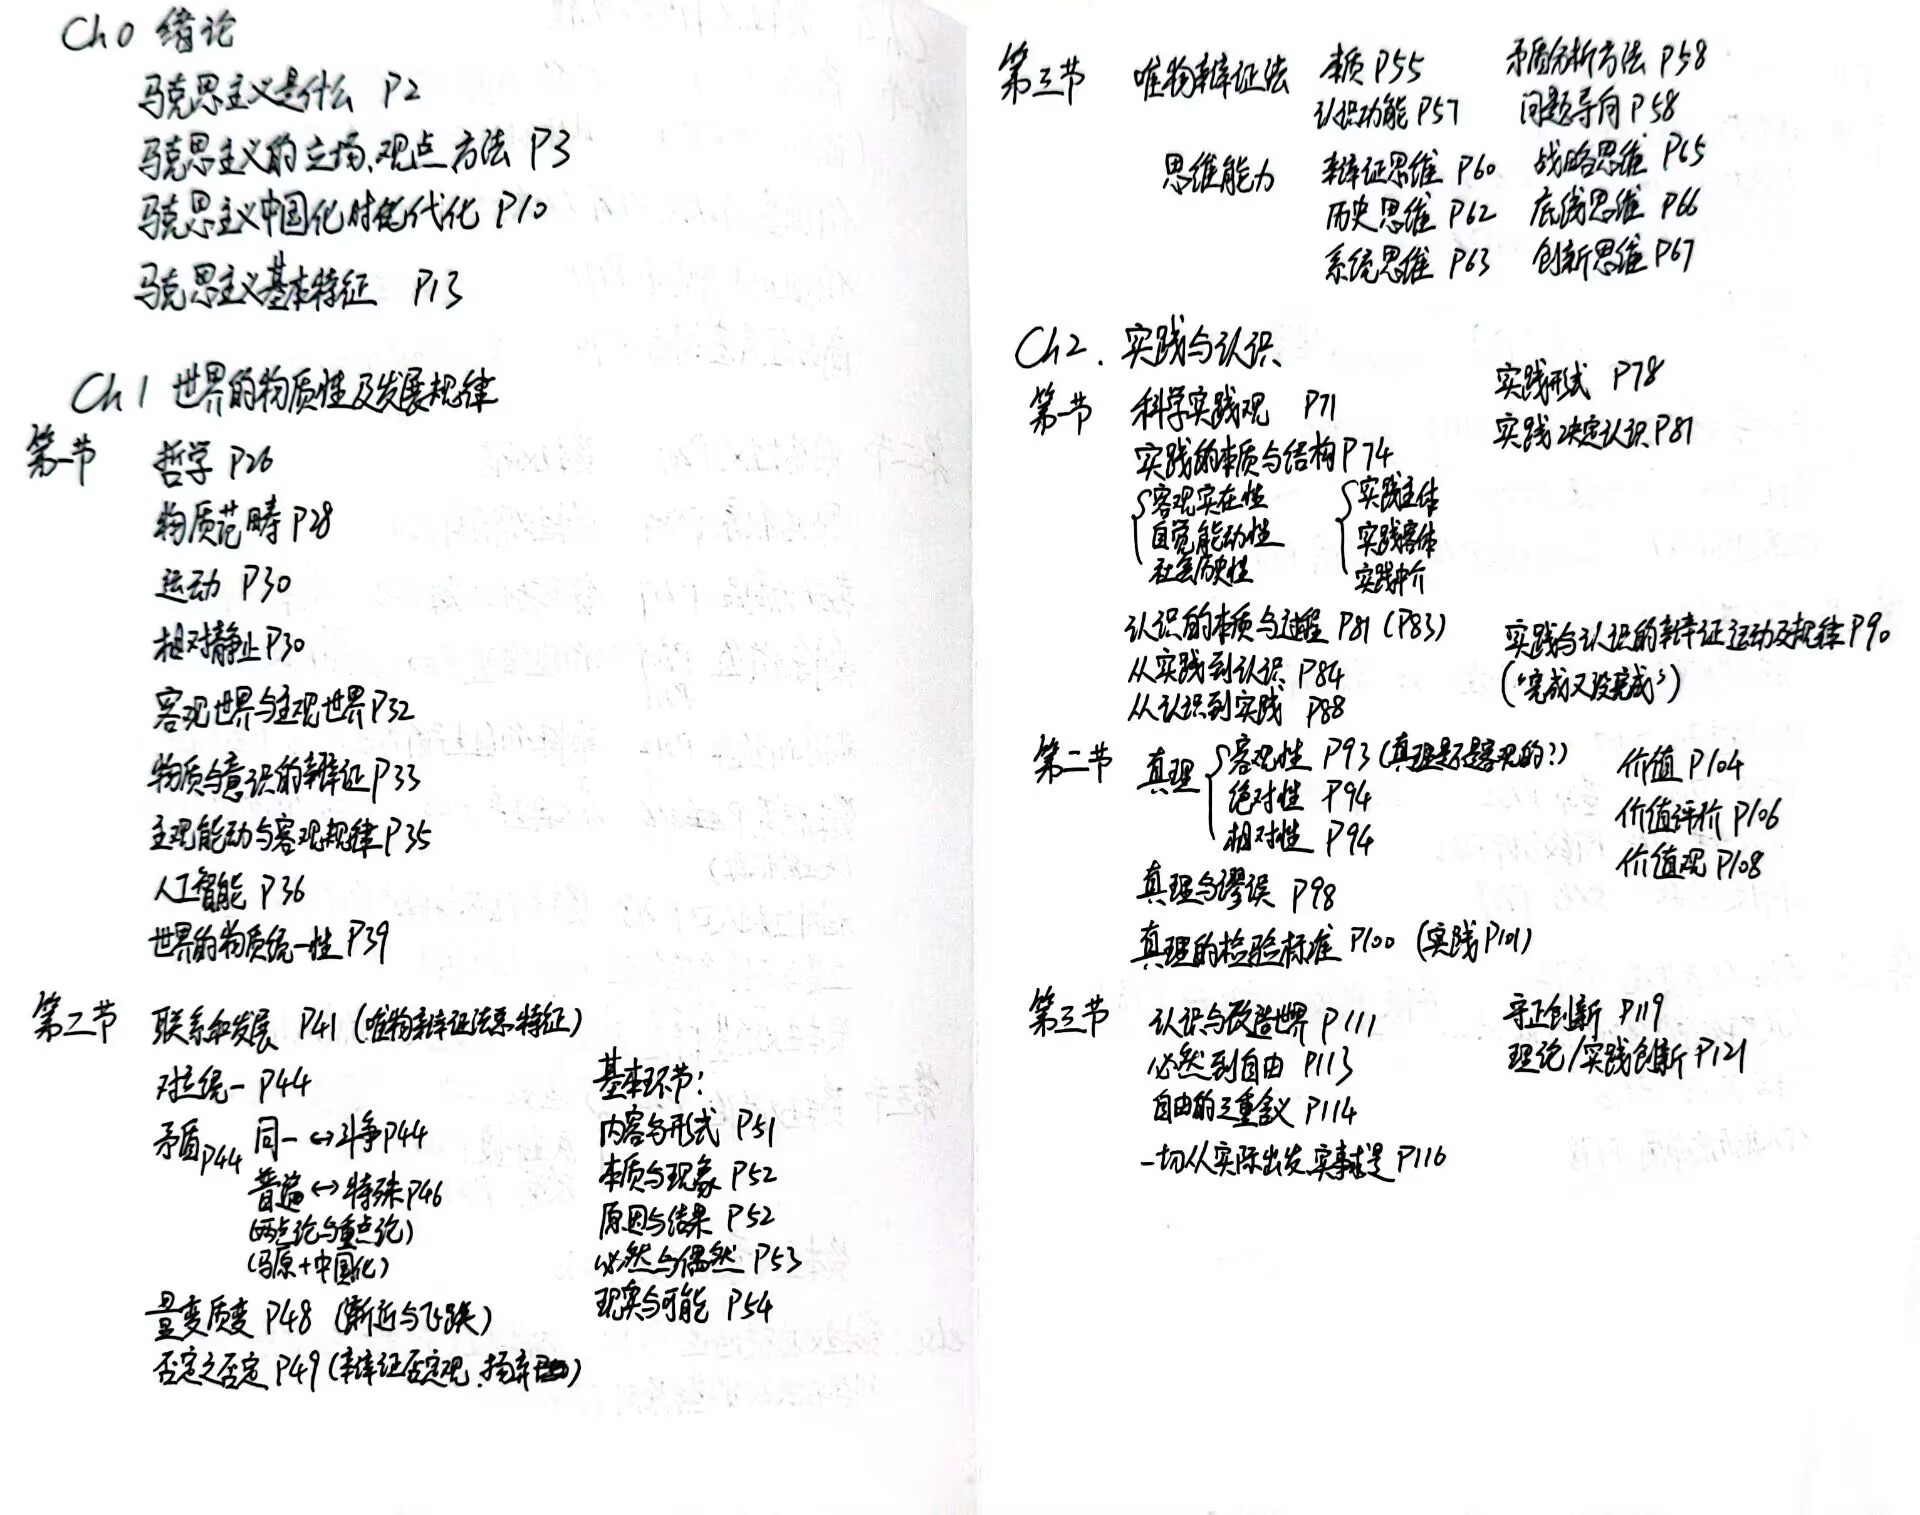 Ch 0 绪论
马克思主义是什么 P2
马克思主义的立场、观点方法 P3
马克思主义中国化时代化 P10
马克思主义基本特征 P13
Ch 1 世界的物质性及发展规律
第一节 哲学 P26
物质范畴 P28
运动 P30
相对静止 P30
客观世界与主观世界 P32
物质与意识的辩证 P33
主观能动与客观规律 P35
人工智能 P36
世界的物质统一性 P39
第二节 联系和发展 P41 (唯物辩证法总特征)
对立统一 P44
矛盾 P44 同一 ↔ 斗争 P44
普遍 ↔ 特殊 P46
(两点论与重点论)
(马原+中国化)
量变质变 P48 (渐近与飞跃)
否定之否定 P49 (辩证否定观、扬弃)
基本环节:
内容与形式 P51
本质与现象 P52
原因与结果 P52
必然与偶然 P53
现实与可能 P54
第三节 唯物辩证法 本质 P55 矛盾分析方法 P58
认识功能 P57 问题导向 P58
思维能力 辩证思维 P60 战略思维 P65
历史思维 P62 底线思维 P66
系统思维 P63 创新思维 P67
Ch 2. 实践与认识
第一节 科学实践观 P71
实践的本质与结构 P74
客观实在性 实践主体
自觉能动性 实践客体
社会历史性 实践中介
实践形式 P78
实践决定认识 P81
认识的本质与过程 P81 (P83)
从实践到认识 P84
从认识到实践 P88
实践与认识的辩证运动及规律 P90
("完成又没完成")
第二节 真理 客观性 P93 (真理是不是客观的?)
绝对性 P94
相对性 P94
真理与谬误 P98
真理的检验标准 P100 (实践 P101)
价值 P104
价值评价 P106
价值观 P108
第三节 认识与改造世界 P111
必然到自由 P113
自由的三重含义 P114
一切从实际出发、实事求是 P116
守正创新 P119
理论/实践创新 P121